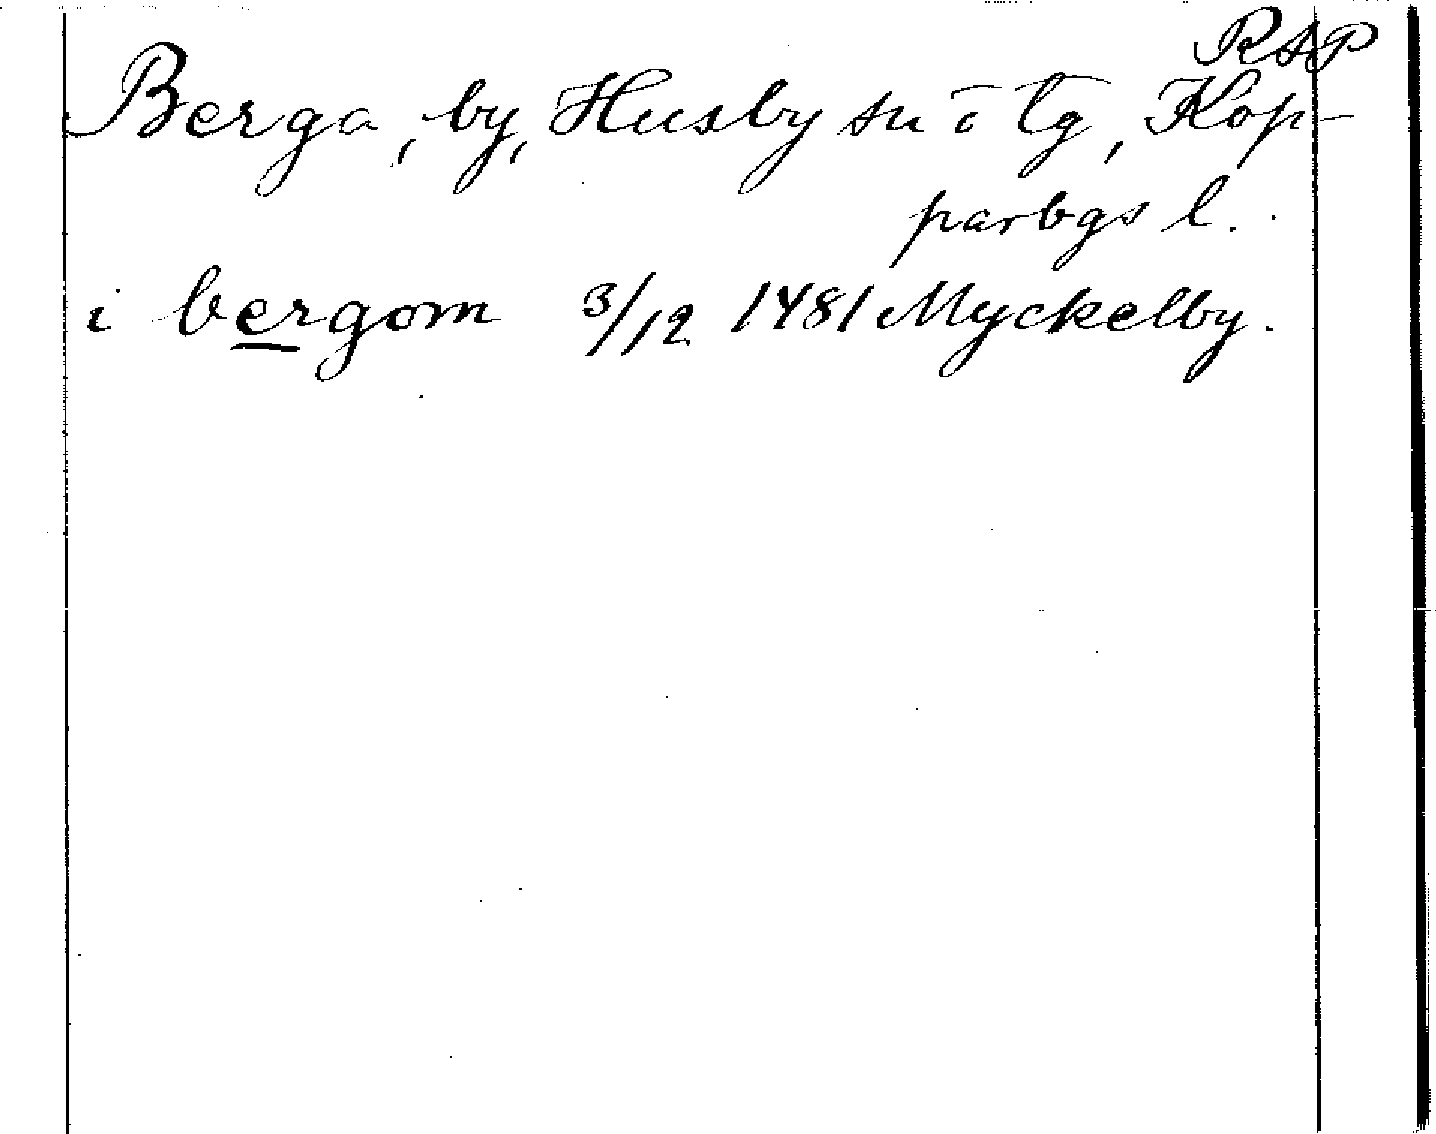 RAP
Berga, by, Husby sn o tg, Kop-
parbgs l.
i bergom 3/12 1481 Myckelby.